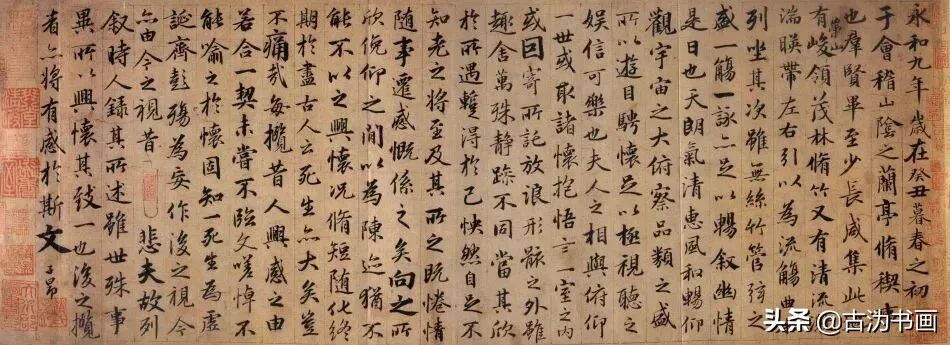 永和九年歲在癸丑暮春之初
于會稽山陰之蘭亭脩禊事
也羣賢畢至少長咸集此
有崇山峻領茂林脩竹又有清流
湍暎帶左右引以為流觴曲
列坐其次雖無絲竹管弦之
盛一觴一詠亦足以暢叙幽情
是日也天朗氣清惠風和暢仰
觀宇宙之大俯察品類之盛
所以遊目騁懷足以極視聽之
娛信可樂也夫人之相與俯仰
一世或取諸懷抱悟言一室之內
或因寄所託放浪形骸之外雖
趣舍萬殊静躁不同當其欣
於所遇蹔得於己怏然自足不
知老之將至及其所之既惓情
隨事遷感慨係之矣向之所
欣俛仰之閒以為陳迹猶不
能不以之興懷况脩短隨化終
期於盡古人云死生亦大矣豈
不痛哉每攬昔人興感之由
若合一契未嘗不臨文嗟悼不
能喻之於懷固知一死生為虛
誕齊彭殤為妄作後之視今
亦由今之視昔悲夫故列
叙時人錄其所述雖世殊事
異所以興懷其致一也後之攬
者亦將有感於斯文 子昂
头条 @古沩书画